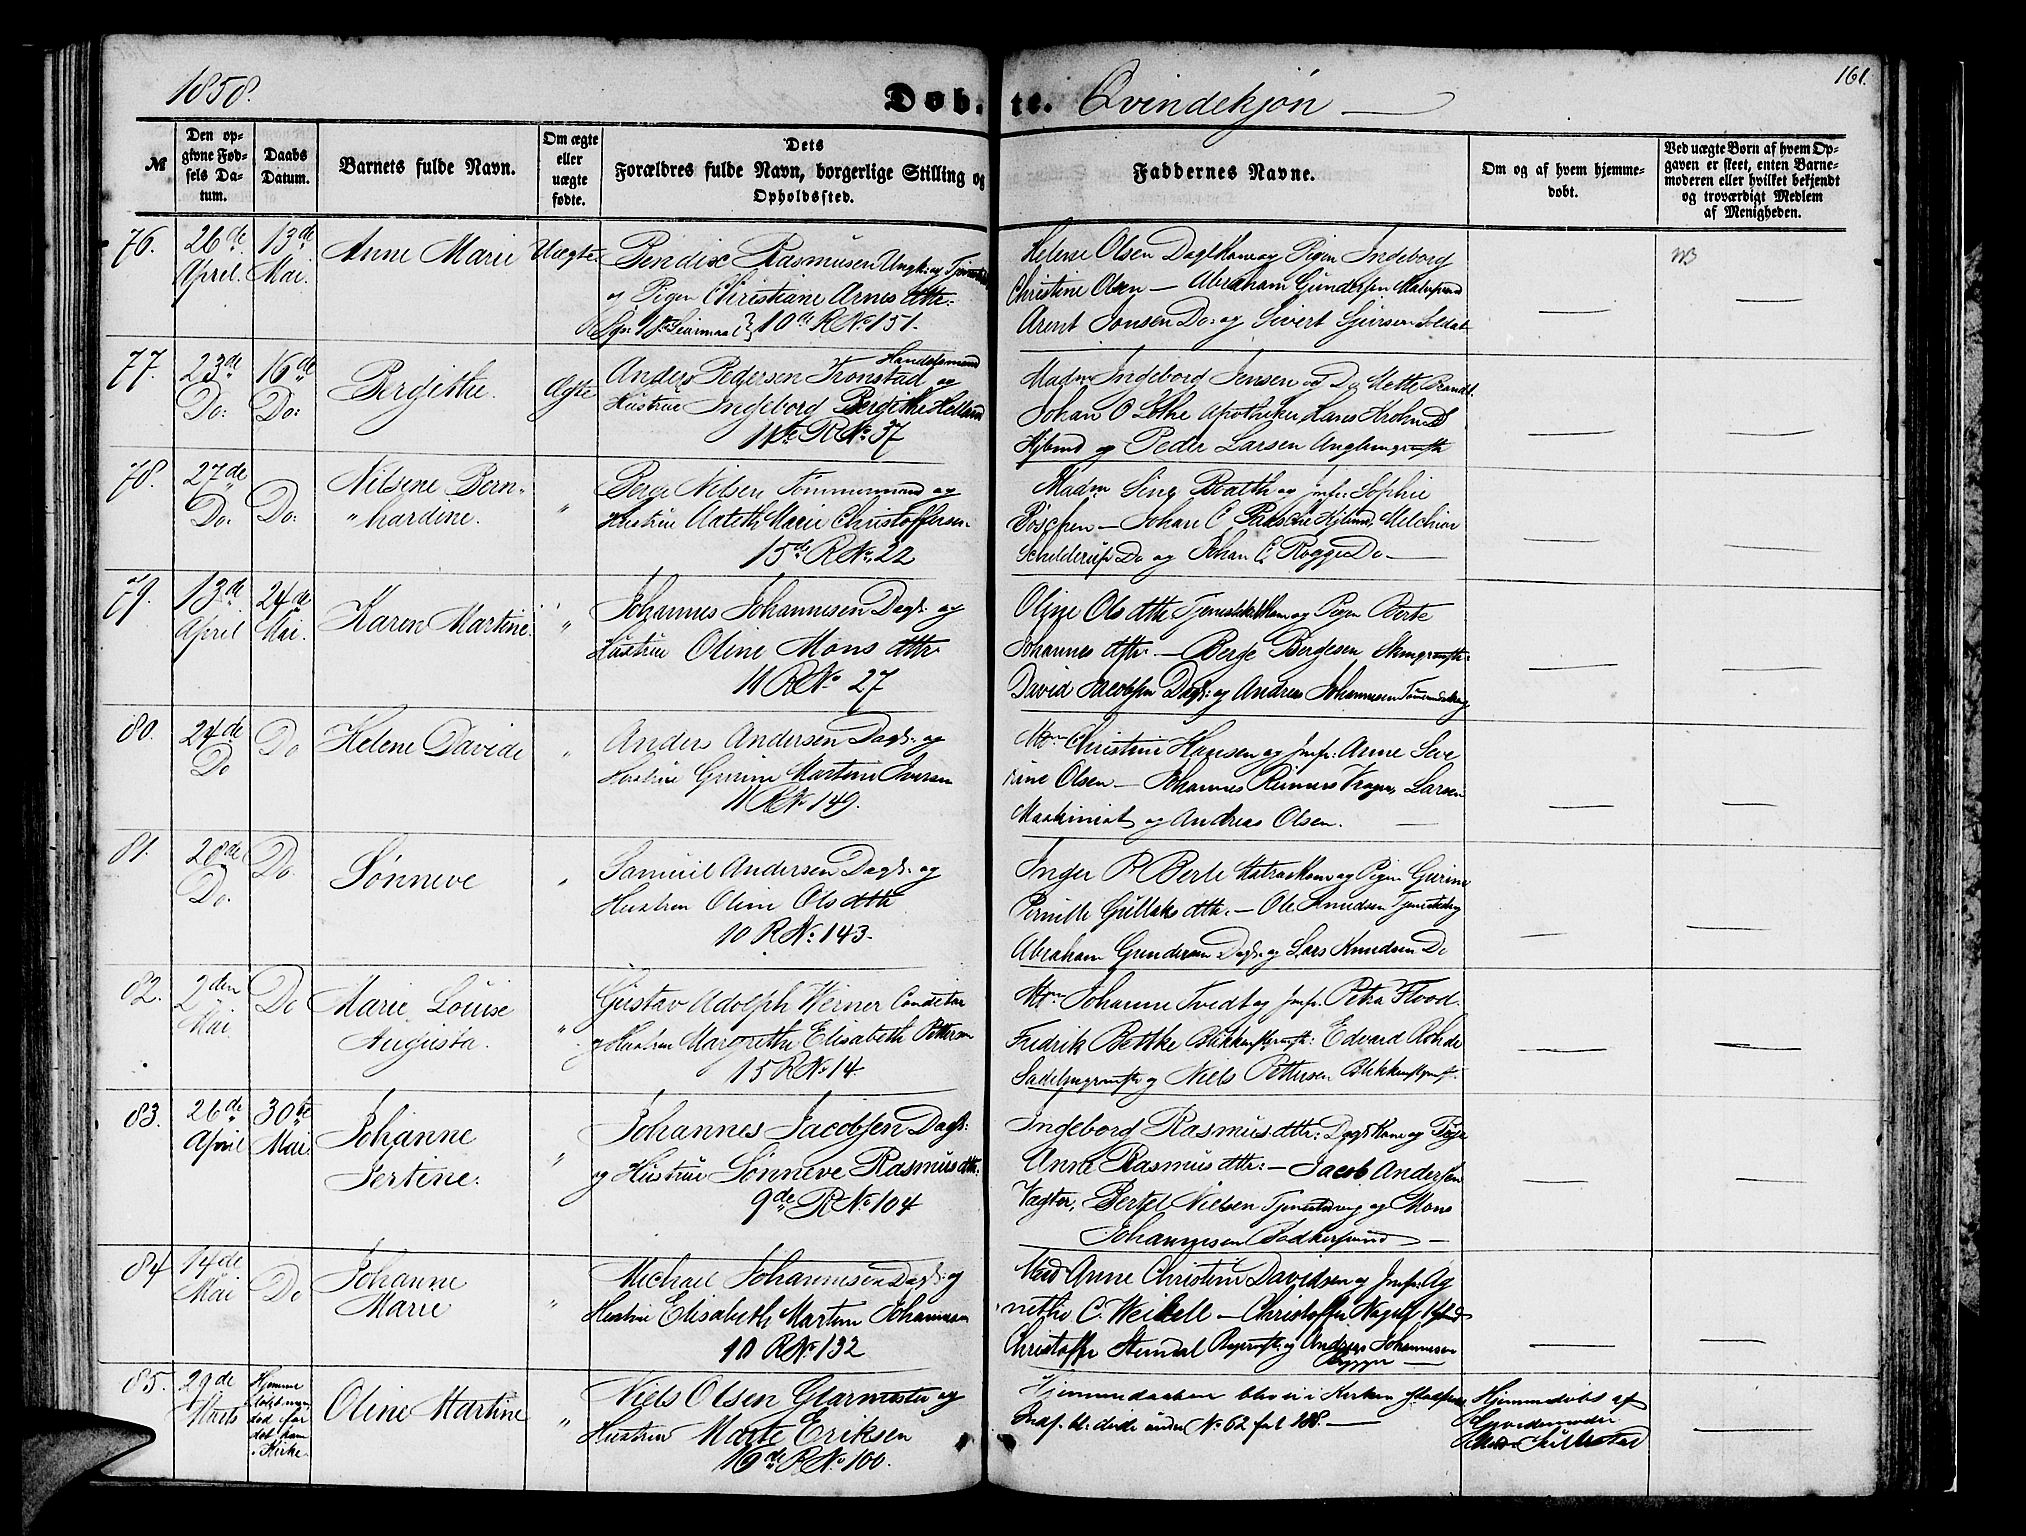 1858.
Døb-te. Qvindekjøn
161.
№
Den opgivne Fødsels Datum.
Daabs Datum.
Barnets fulde Navn.
Om ægte eller uægte fødte.
Dets
Forældres fulde Navn, borgerlige Stilling og
Opholdssted.
Faddernes Navne.
Om og af hvem hjemmedøbt.
Ved uægte Børn af hvem Opgaven er skeet, enten Barnemoderen eller hvilket bekjendt og troværdigt Medlem af Menigheden.
76. 26de April. 13de Mai. Anne Marie Uægte
Bendix Rasmusen Ungk: og
og Pigen Christiane Arnesdttr:
10de R No 151.
Helene Olsen Dagl Kone og Pigen Ingeborg
Christine Olsen — Abraham Gundersen
Arent Jonsen Do: og Sivert Sjursen Soldat
77. 23de Do: 16de Do: Bergithe. Ægte
Anders Pedersen Tronstad Handelsmand og
Hustrue Ingeborg Bergithe Helland
11te R No 37
Madm Ingeborg Jensen og Do Mette Brandt.
Johan C Lothe Apotheker, Lars Krohn
og Peder Larsen
78. 27de Do: Do: Nilsene Bern-
hardine. "
Berge Nilsen Tømmermand og
Hustrue Aaleth Marie Christoffersen.
15de R No 22
Madm Sina Barth og Jmfr: Sophie
Pöschen — Johan C Melchior
Schelderup Do og Johan C. Rogge Do —
79. 13de April 24de Mai. Karen Martine. "
Johannes Johannesen Dagl: og
Hustrue Oline Monsdttr
11 R No 27
Oline Olsdttr og Pigen Berte
Johannesdttr. — Berge Bergesen
David Jacobsen Dagl: og Andreas Johannesen
80. 24de Do Do Helene Davide "
Anders Andersen Dagl: og
Hustrue Gurine Martine Iversen
11 R No 149.
Mm Christine Hansen og Jmfr: Anne Seve
rine Olsen — Johannes Reimers Larsen
Maskinist og Andreas Olsen.
81. 28de Do. Do. Sønneve "
Samuel Andersen Dagl: og
Hustrue Oline Olsdttr
10 R No: 143.
Inger R Berle Kone og Pigen Gurine
Pernille Gullaksdttr. — Ole Knudsen
Abraham Gundersen Dagl: og Lars Knudsen Do
82. 2den Mai Do Marie Louise
Augusta. "
Gustav Adolph Werner Conditor
og Hustrue Margrethe Elisabeth Pettersen
15 R No 14.
Mm Johanne Tvedt og Jmfr: Petra Flood.
Fredrik Bethke Edvard Rohde
og Niels Pettersen
83. 26de April 30te Mai Johanne
Sertine. "
Johannes Jacobsen Dagl:
og Hustrue Sønneve Rasmusdttr:
9de R No 104
Ingeborg Rasmusdttr: Dagl Kone og Pige
Anne Rasmusdttr: — Jacob Andersen
Vægter, Bertel Nielsen Tjenestedreng og Mons
Johannesen Bødkersvend —
84 14de Mai Do Johanne
Marie "
Michael Johannesen Dagl: og
Hustrue Elisabeth Martine Johannesen
10 R No 132
Mad Anne Christine Davidsen og Jmfr: Ag
nethe C. Weibell — Christoffer
Christoffer Stendal og Andreas Johannesen
85. 29de Marts Hjemme
døbt
Kirke Oline Martine "
Niels Olsen Glarmester og
Hustrue Marte Eriksen
19de R No 100.
Hjemmedaaben blev ei i Kirken stadfæstet
død under No 62 fol 188. —
Hjemmedøbt af
Gjordemoder
Mad: